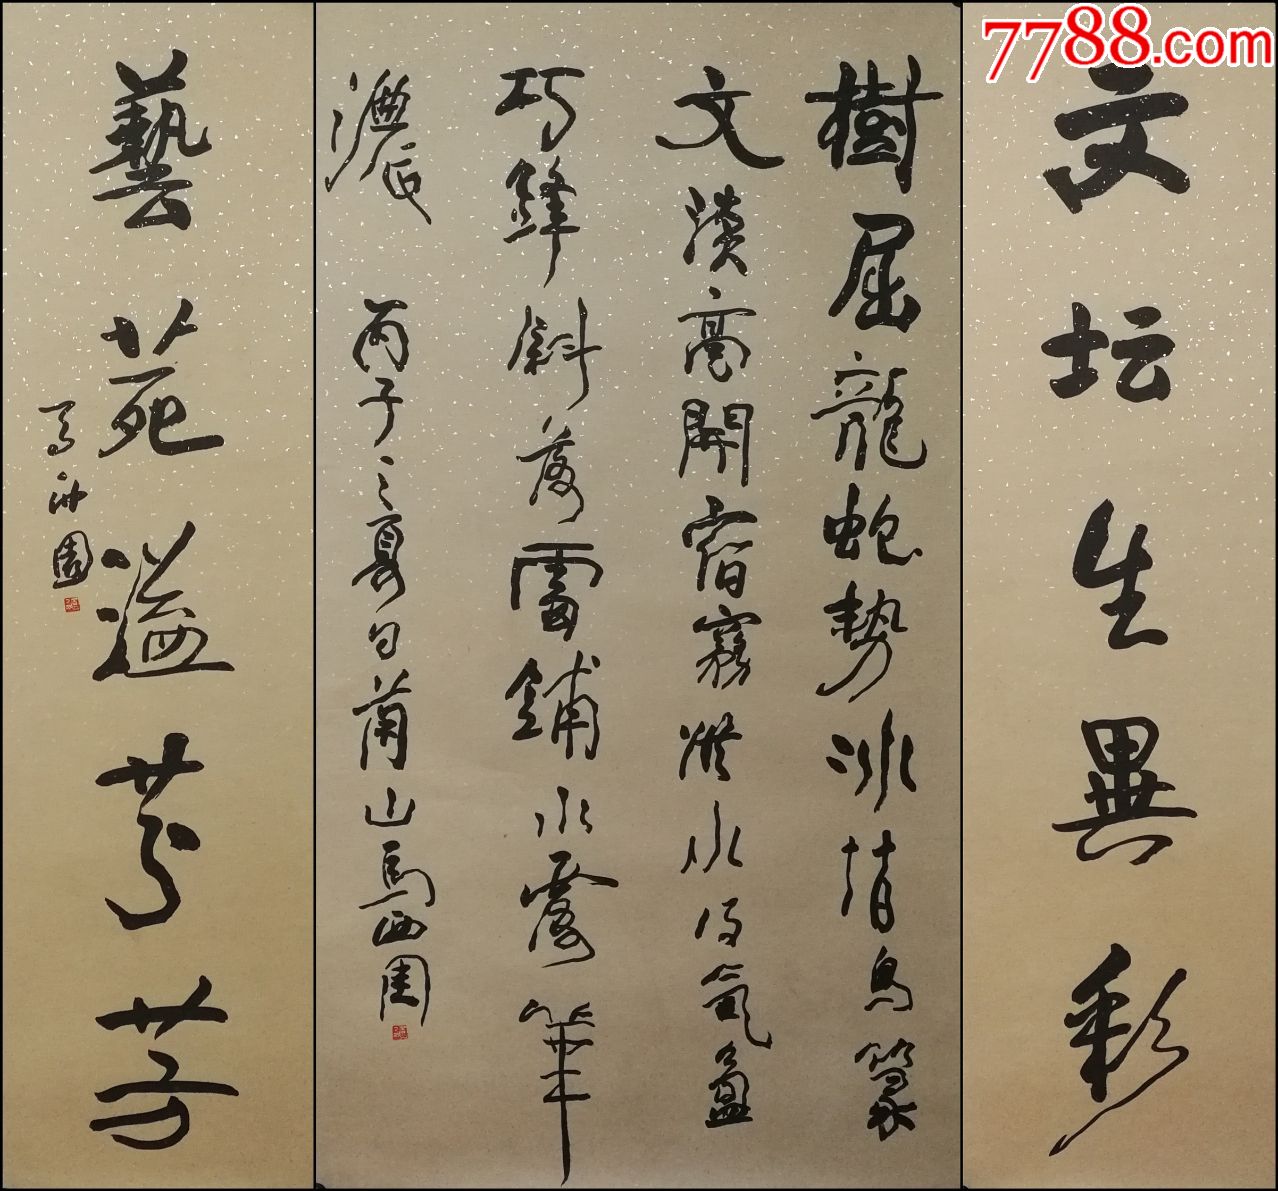 7788.com
文坛生異彩
樹屈龍蛇勢冰清鳥篆
文淡毫開宿霧水氣盈
巧鋒斜落鋪水露筆
濃
丙子之夏句蘭山馬西園
藝苑溢芬芳
馬西園